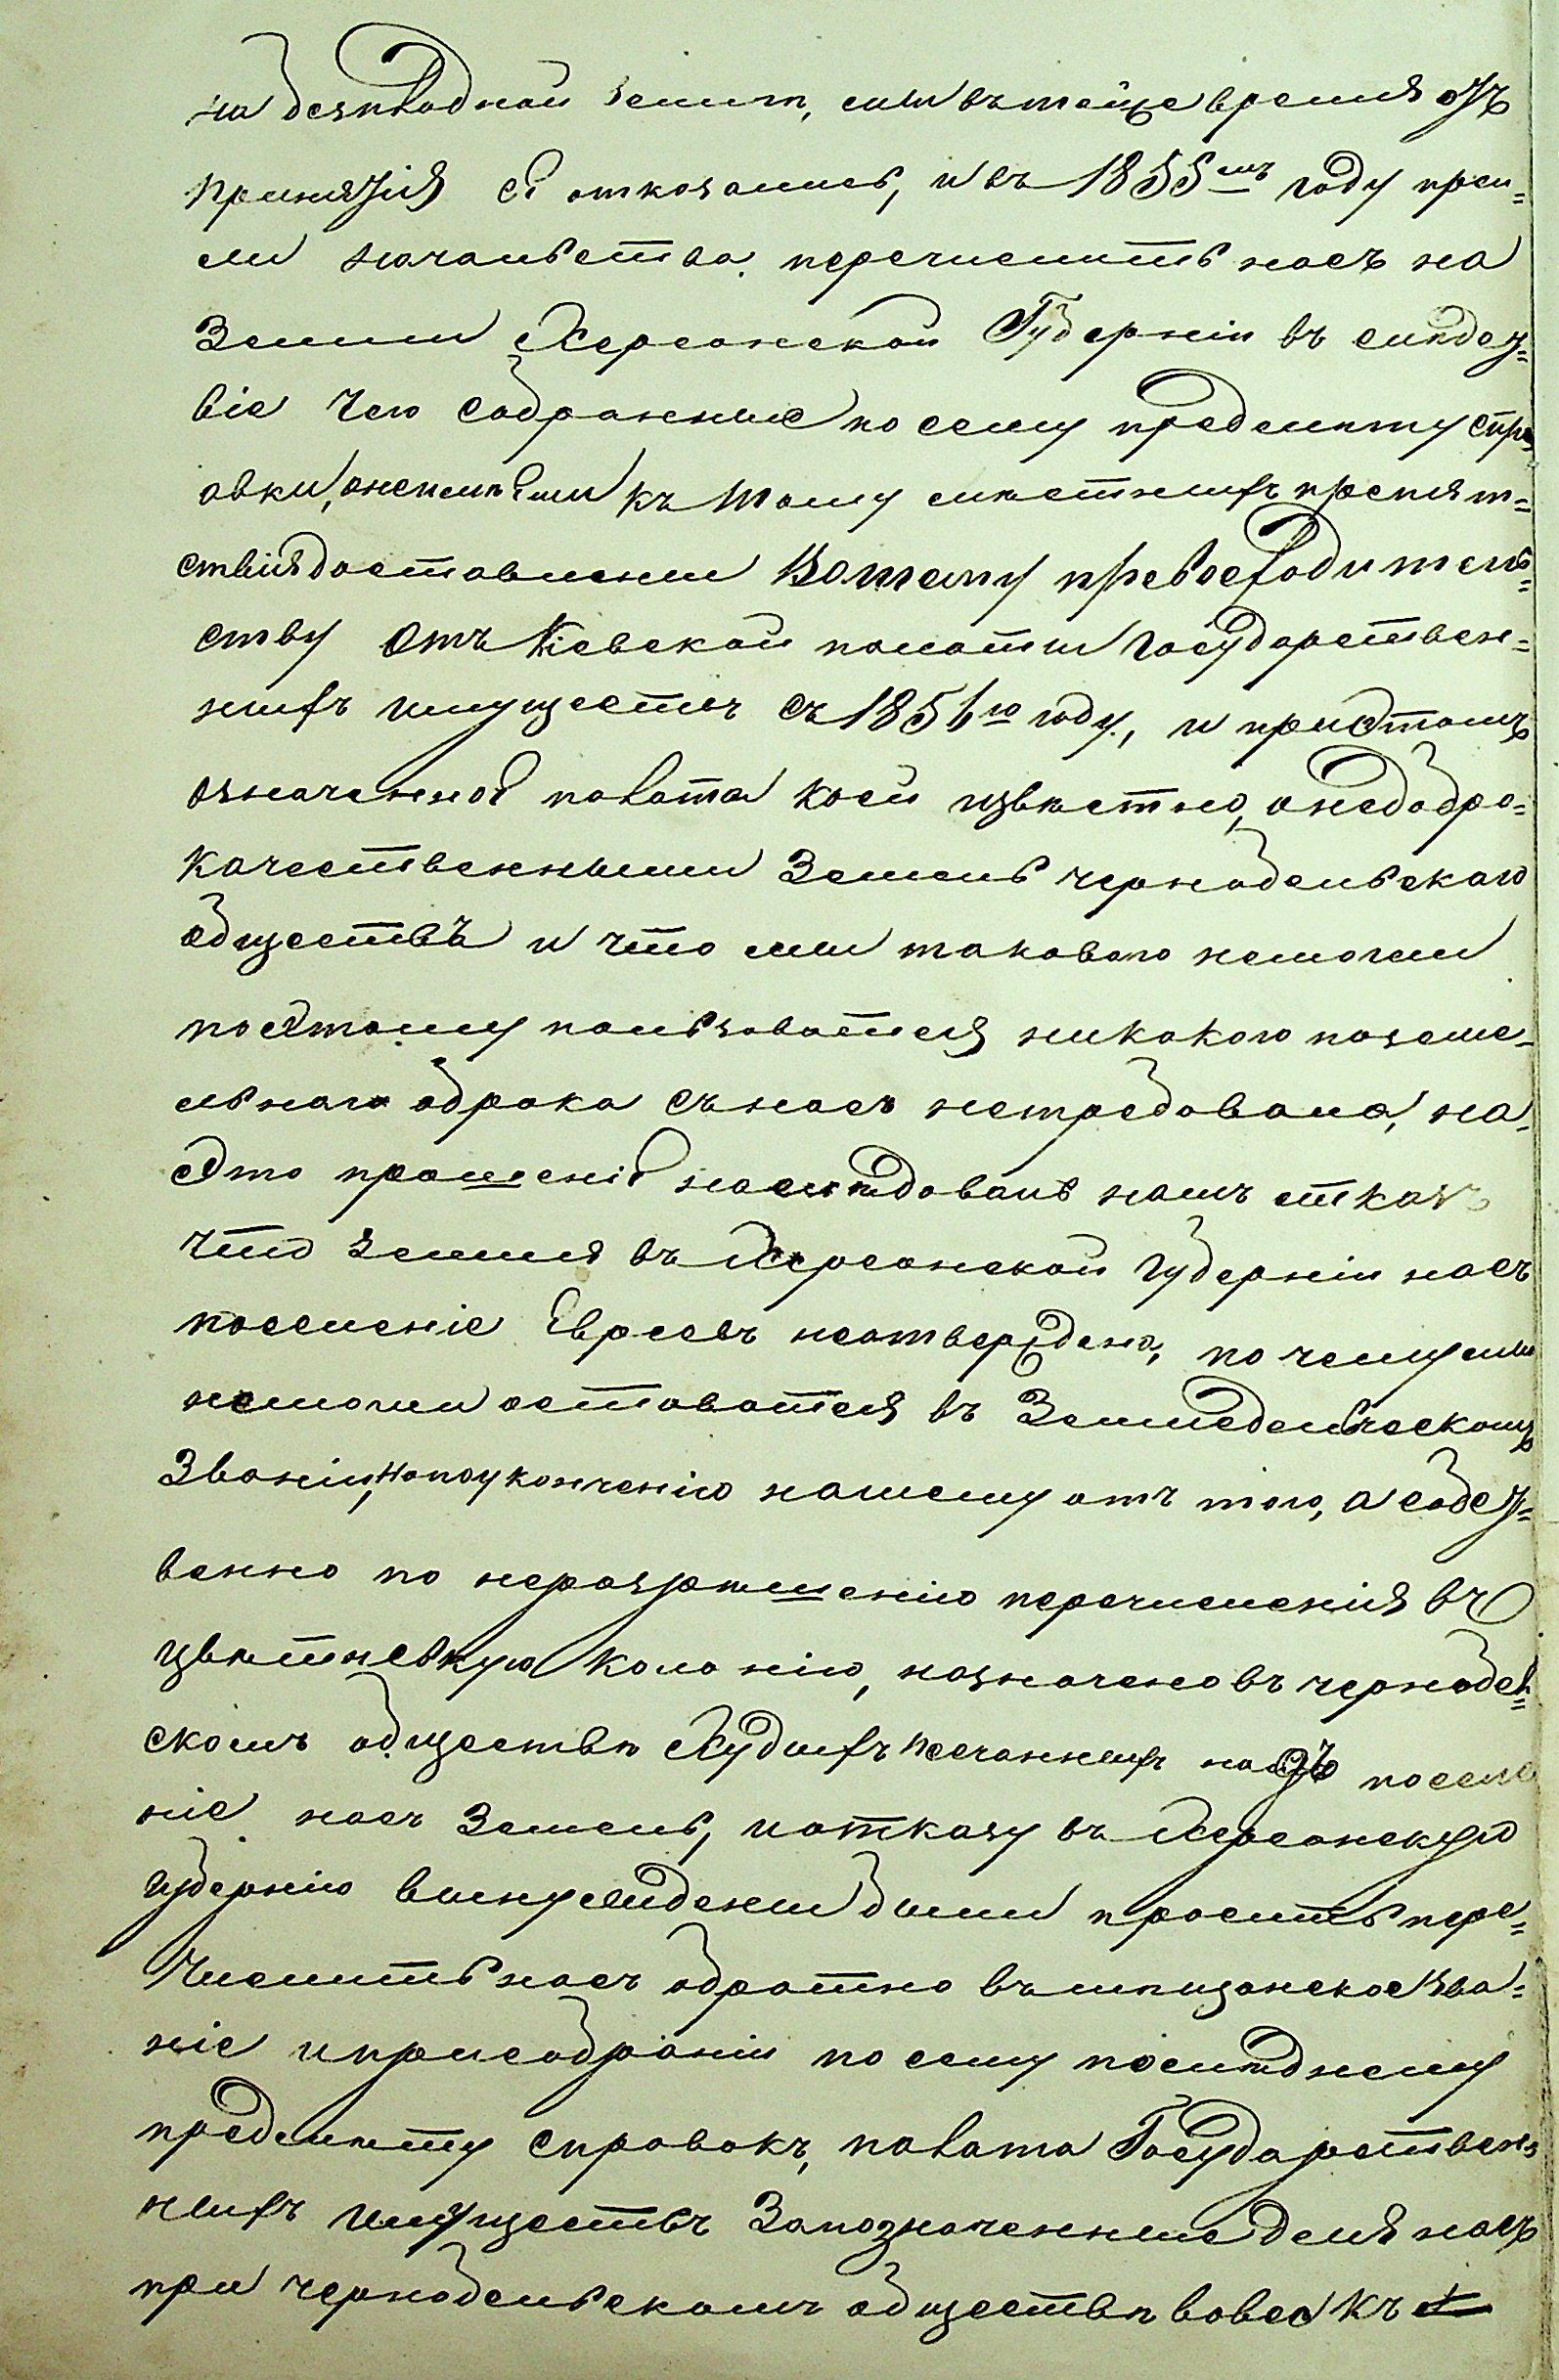 на безплодной земли, мы въ тоже время отъ
принятія ея отказались, и въ 1855мъ году проси=
ли начальства перечислить насъ на
Земли Херсонской Губерніи въ слѣдст=
віе чего собранные по сему предмѣту спра
овки, онеимѣніи къ тому мѣстныхъ препят=
ствія доставлении Вашему превосходитель=
ству Отъ Кіевской палаты Государствен=
ныхъ имуществъ съ 1856го году, и при этомъ
означенной палата коей извѣстно, о недобро=
качественными Земель чернобельскаго
обществѣ и что мы таковаго немогли
поэтому пользоватся никакого поземе=
льнаго оброка съ насъ нетребовала, на
Это прошеніе наслѣдовалъ намъ отказъ
что Земля въ Херсонской губерніи насъ
поселеніе Евреевъ неотверждено, по чему мы
немогли оставатся въ Земледельческомъ
Званіи, и по уконченію нашему отъ того, а собст=
венно по неразрешенію перечисленія въ
цвѣтневкую колонію, назначено въ чернобел=
скомъ обществѣ Худыхъ песчанныхъ надъ поселе
ніе насъ Земель, и отказу въ Херсонскую
губернію вынуждены были просить пере=
числить насъ обратно въ мѣщанское Зва=
ніе и присобраніи по сему последнему
предмѣту справокъ, палата Государствен=
ныхъ имуществъ Запозначенные деля насъ
при чернобельскомъ обществѣ вовсе къ